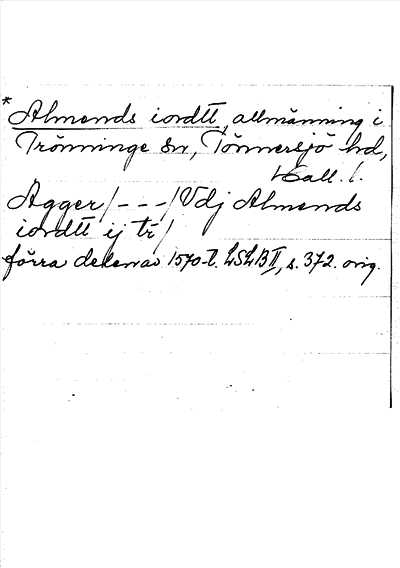 * Almends iordtt, allmänning i
Trönninge sn, Tönnersjö hd,
Hall. l.
Agger /- - -/ Vdj Almends
iordtt ij tr /
förra delen av 1570-t. LSLB II, s. 372. orig.